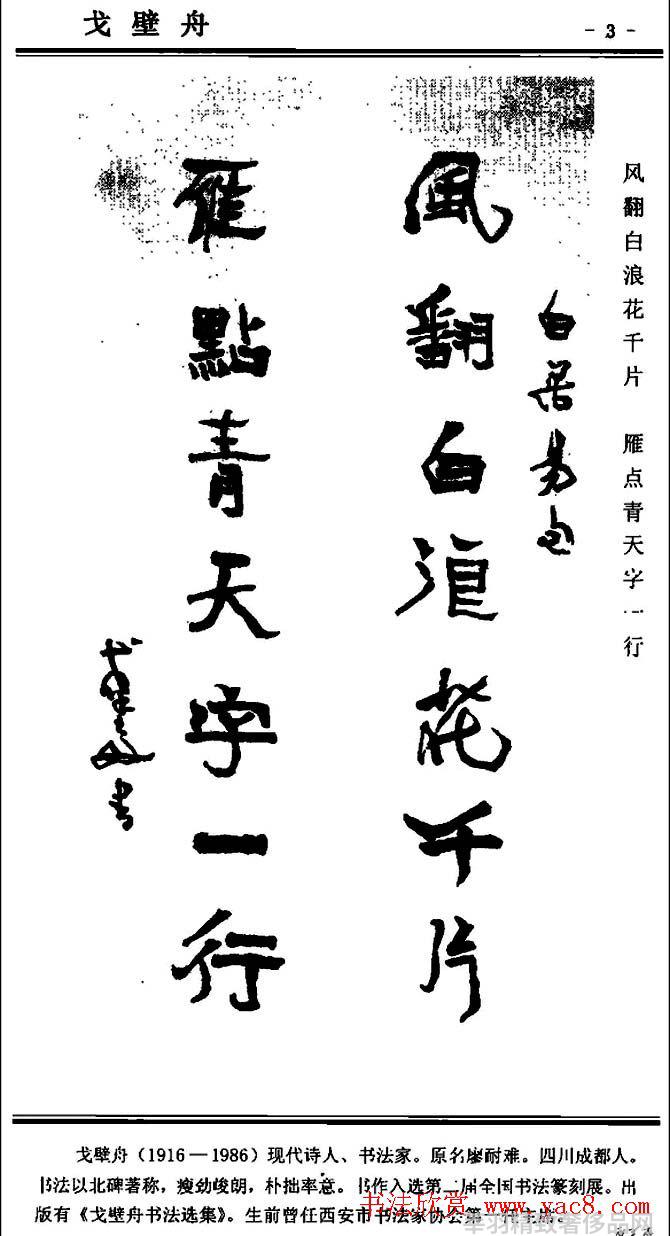 戈壁舟
- 3 -
风翻白浪花千片 雁点青天字一行
白居易句
風翻白浪花千片
雁點青天字一行
戈壁舟书
戈壁舟（1916—1986）现代诗人、书法家。原名廖耐难。四川成都人。
书法以北碑著称，瘦劲峻朗，朴拙率意。书作入选第二届全国书法篆刻展。出
版有《戈壁舟书法选集》。生前曾任西安市书法家协会第一
书法欣赏 www.yac8.com
羽精致奢侈品网